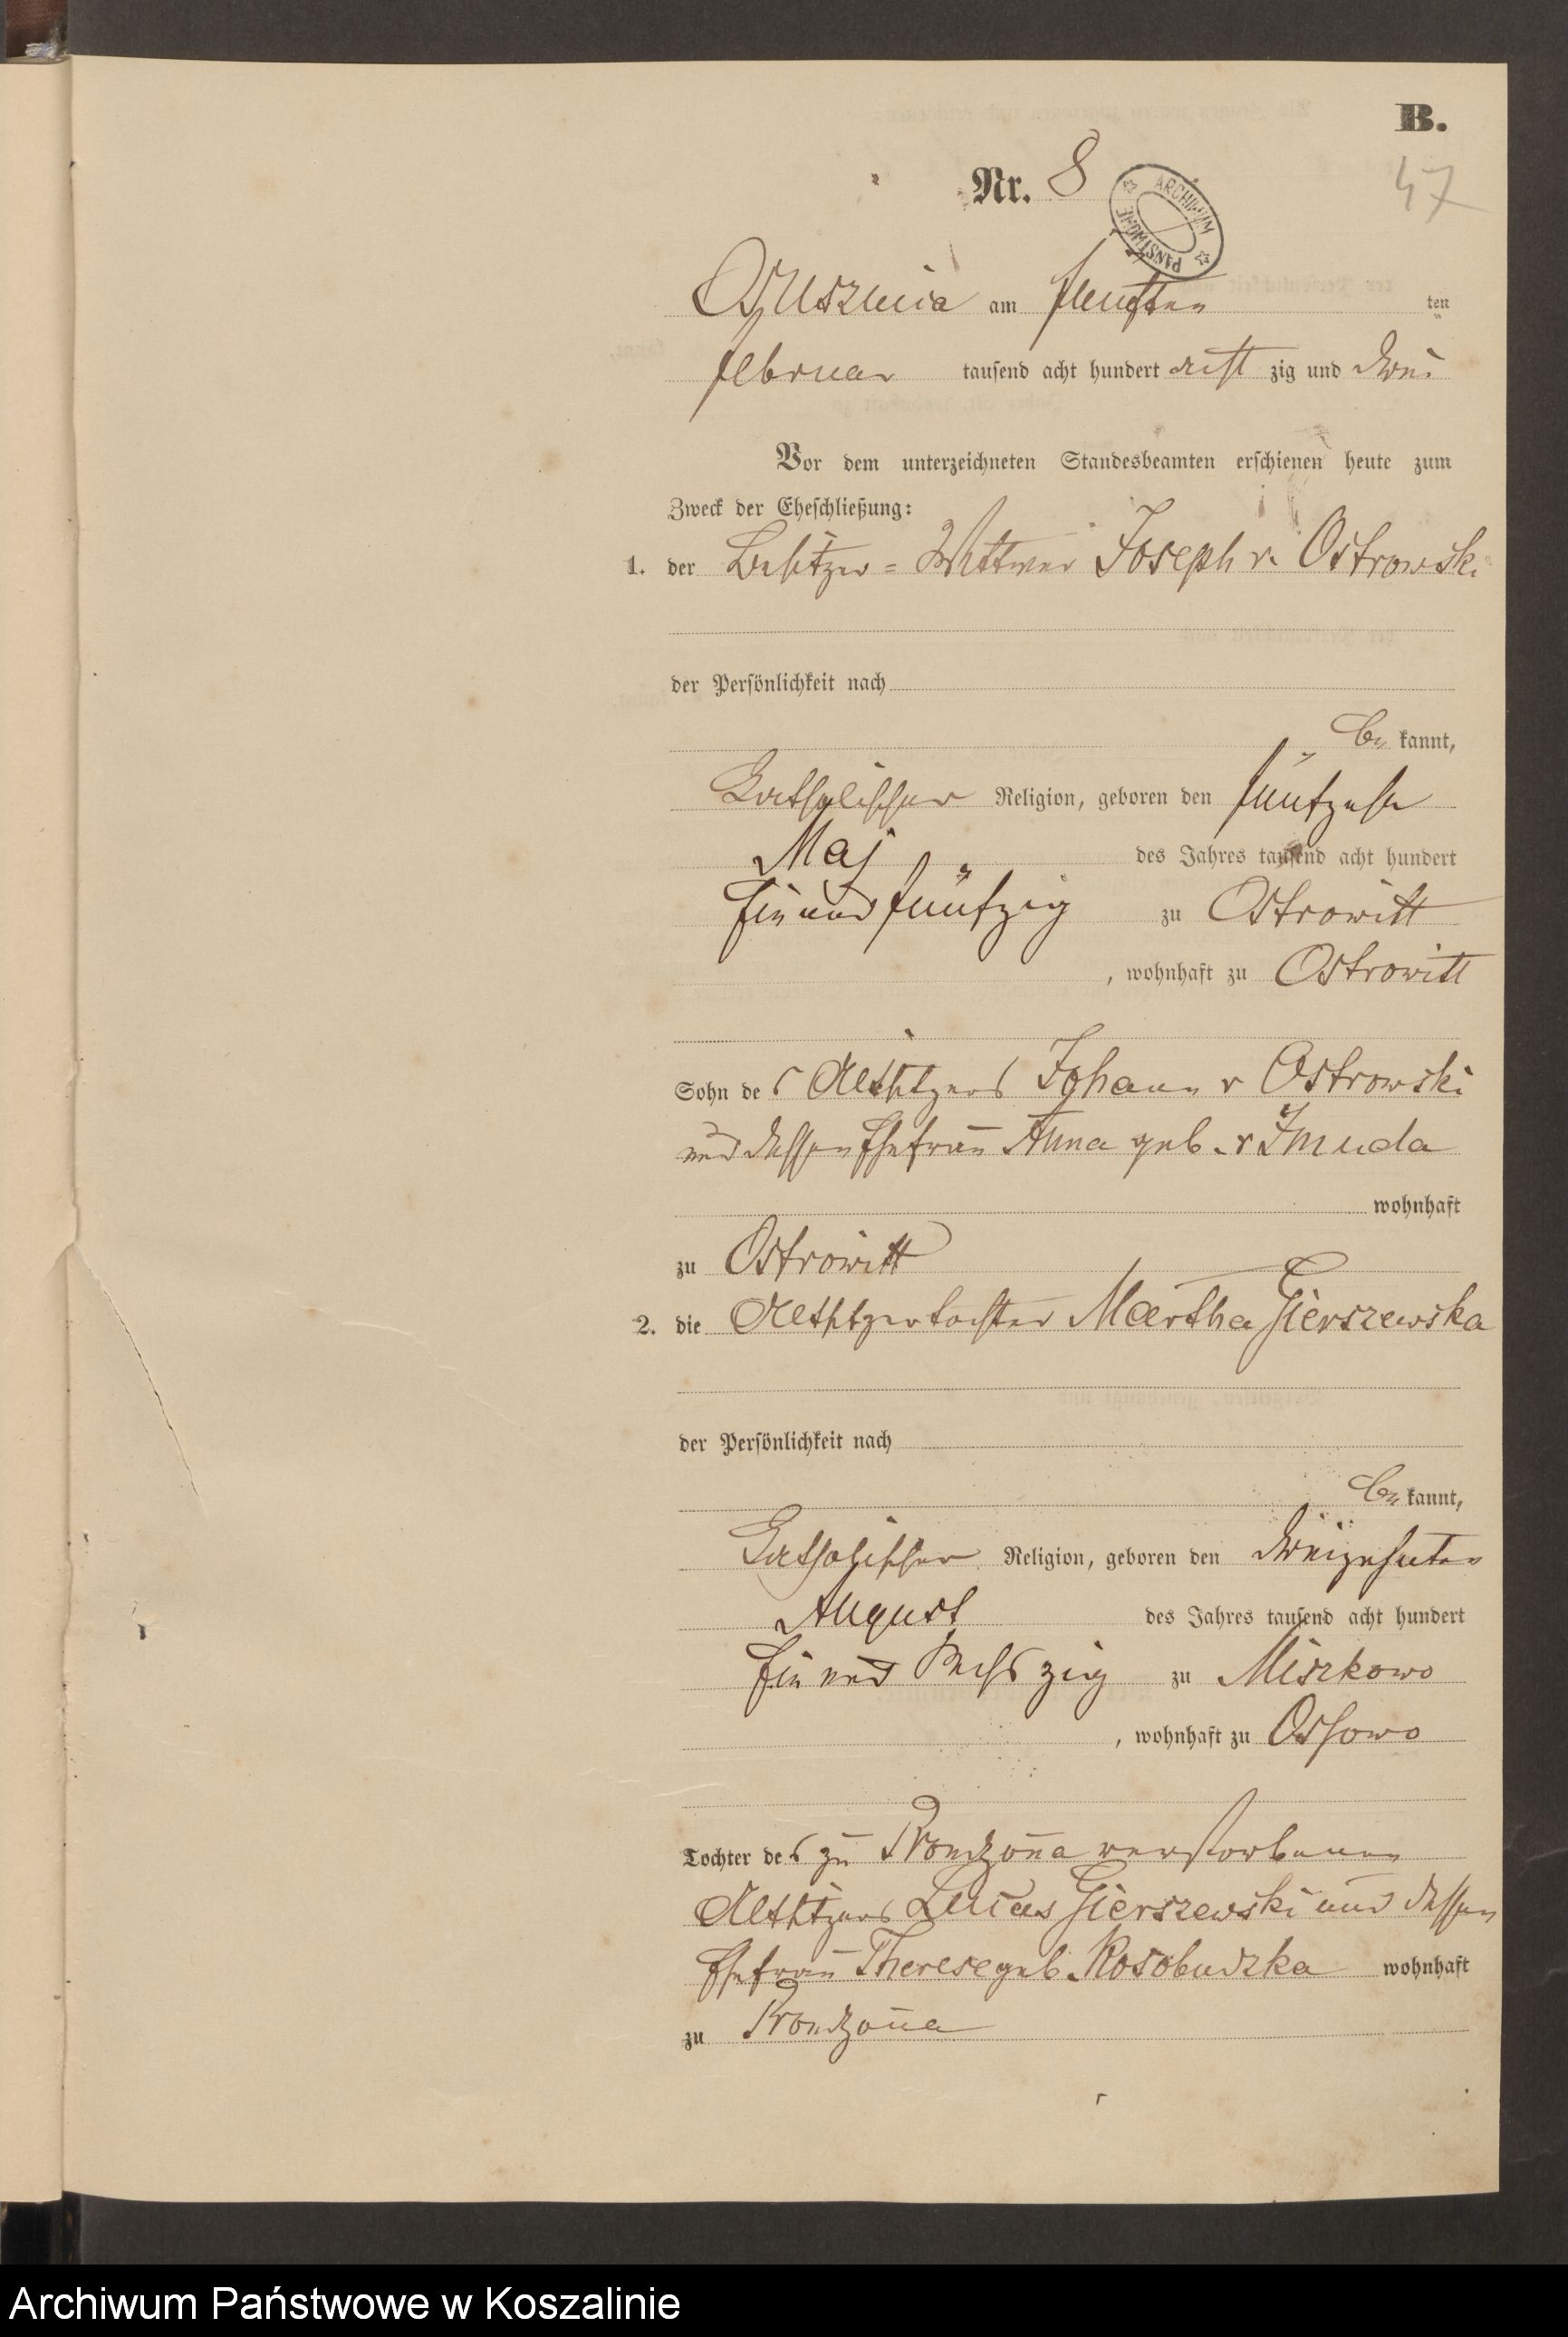 B.
Nr. 8
47
ARCHIWUM PAŃSTWOWE
am fuenften ten
Februar tausend acht hundert acht zig und drei
Vor dem unterzeichneten Standesbeamten erschienen heute zum
Zweck der Eheschließung:
1. der Besitzer = Wittwer Joseph v. Ostrowski
der Persönlichkeit nach
be kannt,
Katholischer Religion, geboren den fünfzehn
Maj des Jahres tausend acht hundert
Ein und fünfzig zu Ostrowitt
, wohnhaft zu Ostrowitt
Sohn des Altsitzers Johann v Ostrowski
und dessen Ehefrau Anna geb. v Zmuda
wohnhaft
zu Ostrowitt
2. die Martha Gierszewska
der Persönlichkeit nach
be kannt,
Katholischer Religion, geboren den dreizehnten
August des Jahres tausend acht hundert
Ein und sechszig zu Miszkowo
, wohnhaft zu Ossowo
Tochter des zu Prondzona verstorbenen
Altsitzers Lucas Gierszewski und dessen
Ehefrau Therese geb. Kosobudzka wohnhaft
zu Prondzona
Archiwum Państwowe w Koszalinie